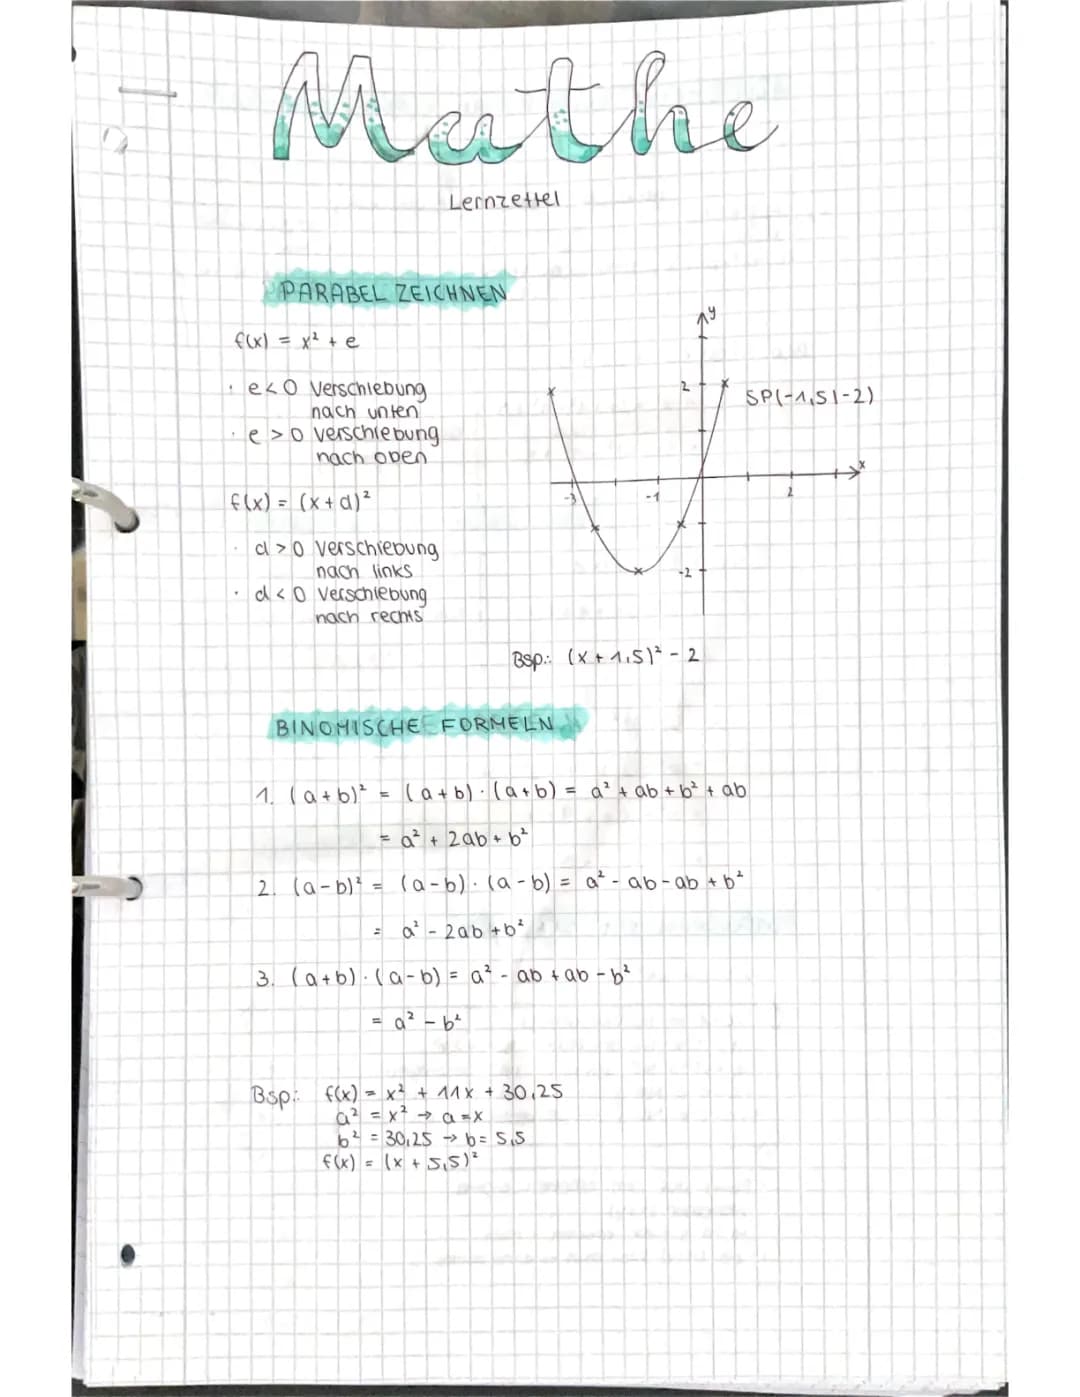 Mathe
Lernzettel
PARABEL ZEICHNEN
f(x) = x² + e
· e<0 Verschiebung
nach unten
· e >0 Verschiebung
nach oben
f(x) = (x+d)²
· d >0 Verschiebung
nach links
· d <0 Verschiebung
nach rechts
y
2
SP(-1,5|-2)
x
-3
-1
2
-2
Bsp.: (x + 1,5)² - 2
BINOMISCHE FORMELN
1. (a+b)² = (a+b)·(a+b) = a² + ab + b² + ab
= a² + 2ab + b²
2. (a-b)² = (a-b)·(a-b) = a² - ab - ab + b²
= a² - 2ab + b²
3. (a+b)·(a-b) = a² - ab + ab - b²
= a² - b²
Bsp.: f(x) = x² + 11x + 30,25
a² = x² → a=x
b² = 30,25 → b= 5,5
f(x) = (x + 5,5)²